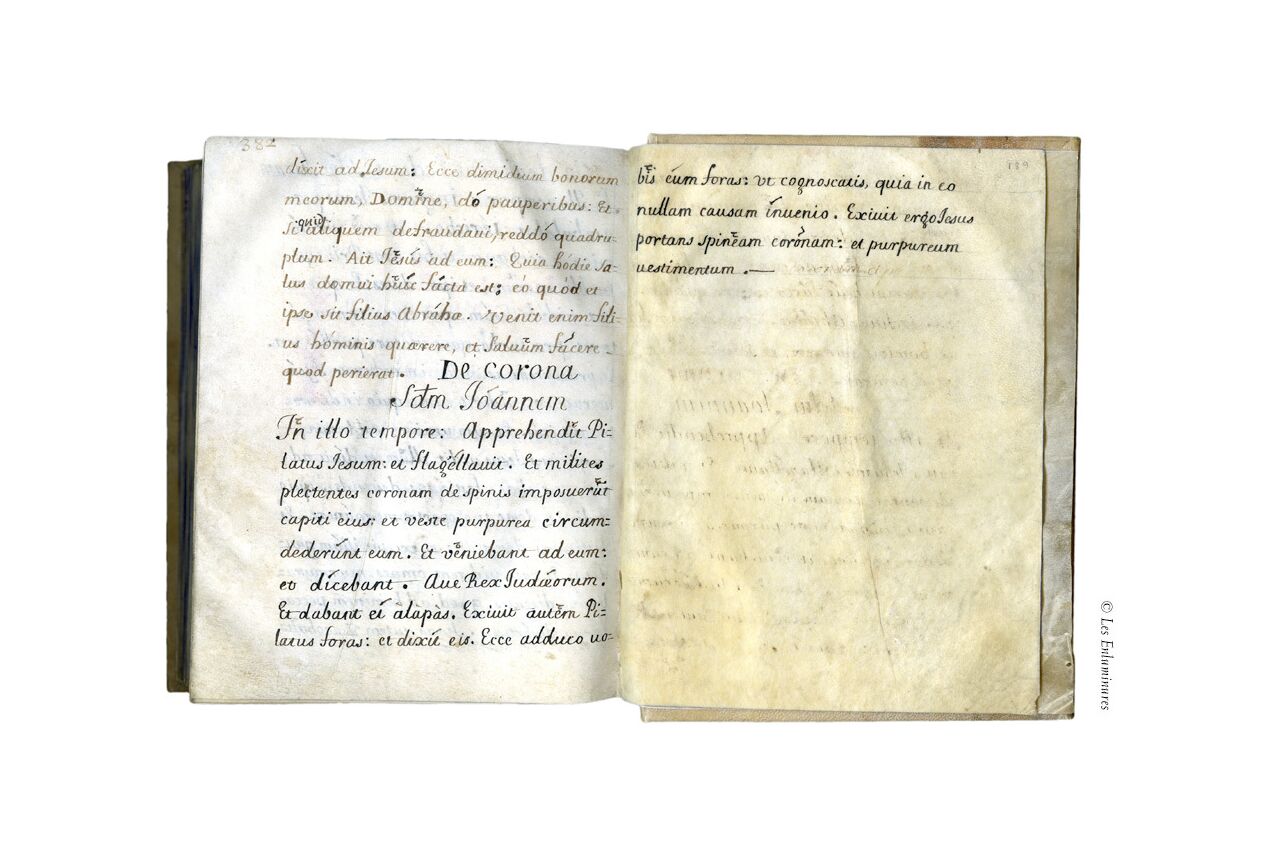 382
dixit ad Iesum: Ecce dimidium bonorum
meorum, Domine, do pauperibus: Et
si aliquem defraudaui, reddo quadru=
quid
plum. Ait Iesus ad eum: Quia hodie sa=
lus domui huic facta est; eo quod et
ipse sit filius Abrahæ. Venit enim fili=
us hominis quærere, et saluum facere
quod perierat. De corona
Scdm Ioannem
In illo tempore: Apprehendit Pi=
latus Iesum: et flagellauit. Et milites
plectentes coronam de spinis imposuerūt
capiti eius: et veste purpurea circum=
dederunt eum. Et veniebant ad eum:
et dicebant. Aue Rex Iudæorum.
Et dabant ei alapas. Exiuit autem Pi=
latus foras: et dixit eis. Ecce adduco uo-
bis eum foras: vt cognoscatis, quia in eo
nullam causam inuenio. Exiuit ergo Iesus
portans spineam coronam: et purpureum
uestimentum.—
© Les Enluminures